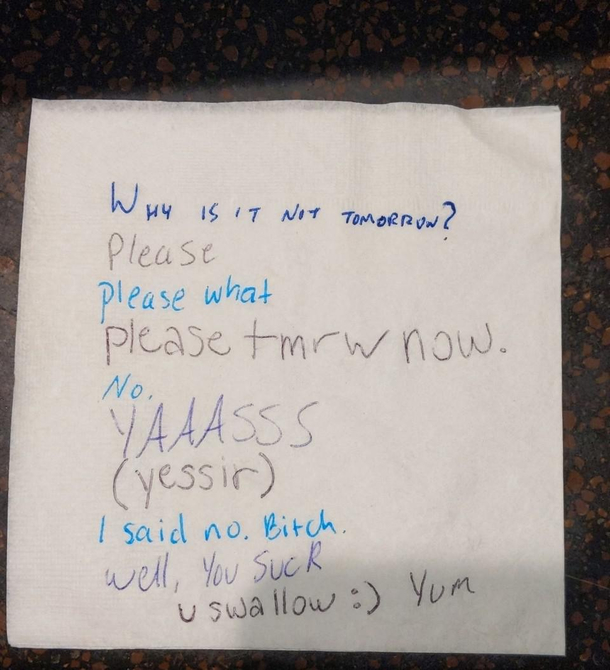 WHY IS IT NOT TOMORROW?
Please
please what
please tmrw now.
No.
YAAASSS
(yessir)
I said no. Bitch.
well, You Suck
u swallow :) Yum